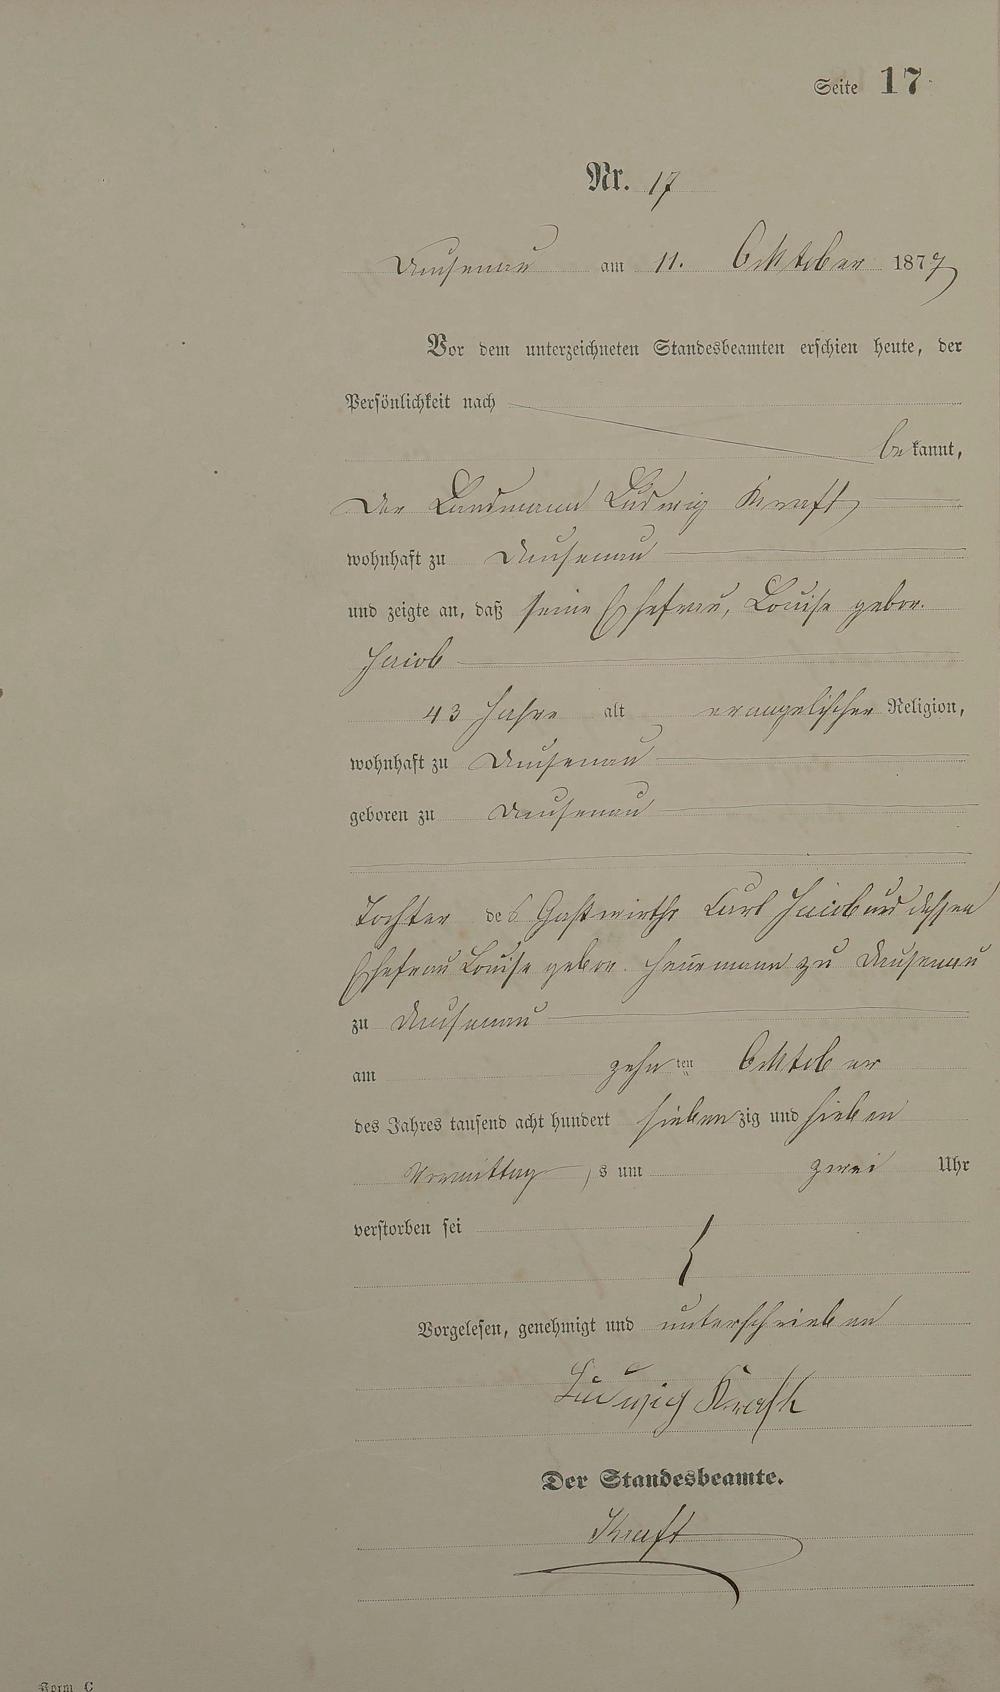 Seite 17
Nr. 17
Dausenau am 11. Oktober 1877
Vor dem unterzeichneten Standesbeamten erschien heute, der
Persönlichkeit nach
bekannt,
Der Landmann Ludwig Kraft
wohnhaft zu Dausenau
und zeigte an, daß seine Ehefrau, Louise gebor.
Jacob
43 Jahre alt evangelischer Religion,
wohnhaft zu Dausenau
geboren zu Dausenau
Tochter des Gastwirths Carl Jacob und dessen
Ehefrau Louise gebor. zu Dausenau
zu Dausenau
am zehnten Oktober
des Jahres tausend acht hundert siebenzig und sieben
Vormittags um zwei Uhr
verstorben sei
Vorgelesen, genehmigt und unterschrieben
Ludwig Kraft
Der Standesbeamte.
Kraft
Form. C